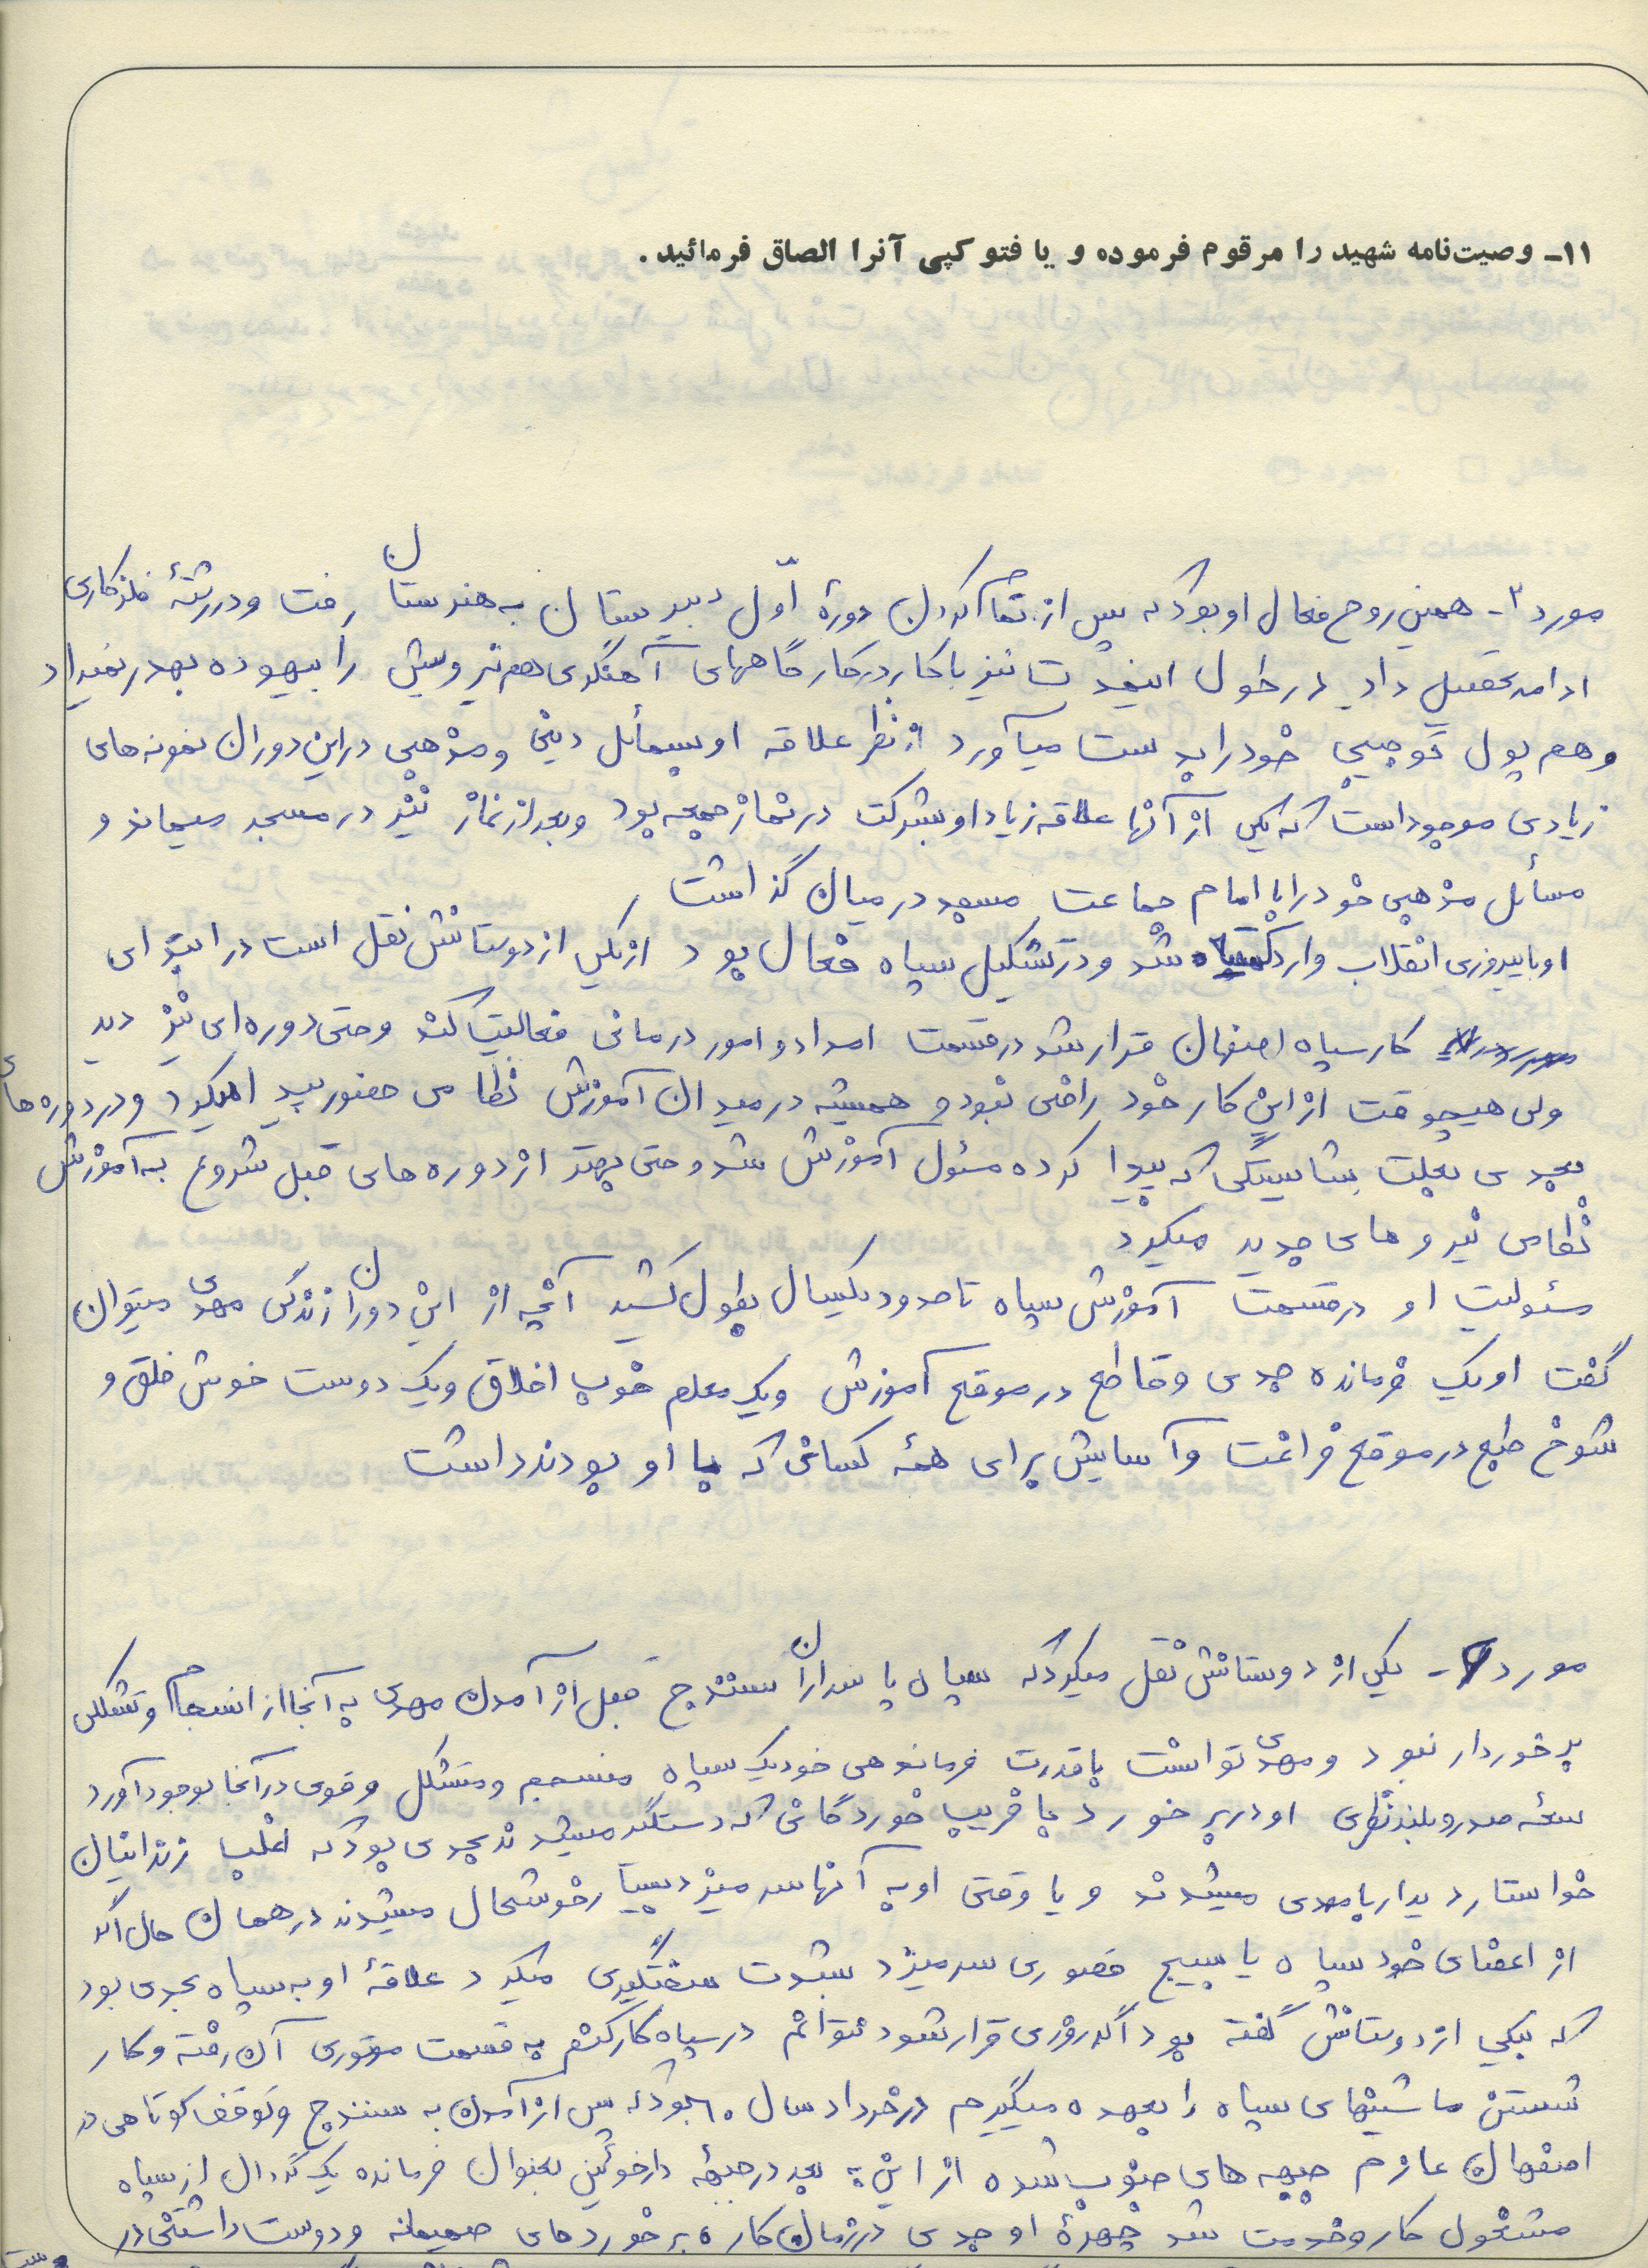 ۱۱ـ وصیت‌نامه شهید را مرقوم فرموده و یا فتوکپی آنرا الصاق فرمائید.
مورد ۳- همین روح فعال او بود که پس از تمام کردن دورهٔ اوّل دبیرستان به هنرستان رفت و در رشتهٔ فلزکاری
ادامه تحصیل داد در طول این مدت نیز با کار در کارگاههای آهنگری هم نیرویش را بیهوده بهدر نمیداد
و هم پول توجیبی خود را بدست میآورد از نظر علاقه او بمسائل دینی و مذهبی در این دوران نمونه های
زیادی موجود است که یکی از آنها علاقه زیاد او بشرکت در نماز جمعه بود و بعد از نماز نیز در مسجد میماند و
مسائل مذهبی خود را با امام جماعت مسجد در میان گذاشت
او با پیروزی انقلاب وارد سپاه شد و در تشکیل سپاه فعال بود از یکی از دوستانش نقل است در ابتدای
کار سپاه اصفهان قرار شد در قسمت امداد و امور درمانی فعالیت کند و حتی دوره ای نیز دید
ولی هیچوقت از این کار خود راضی نبود و همیشه در میدان آموزش نظامی حضور پیدا میکرد و در دوره های
بعدی بعلت شایستگی که پیدا کرده مسئول آموزش شد و حتی بهتر از دوره های قبل شروع به آموزش
نظامی نیروهای جدید میکرد
مسئولیت او در قسمت آموزش سپاه تا حدود یکسال بطول کشید آنچه از این دوران زندگی مهدی میتوان
گفت او یک فرمانده جدی و قاطع در موقع آموزش و یک معلم خوب اخلاق و یک دوست خوش خلق و
شوخ طبع در موقع فراغت و آسایش برای همهٔ کسانی که با او بودند داشت
مورد ۹- یکی از دوستانش نقل میکرد که سپاه پاسداران سنندج قبل از آمدن مهدی به آنجا از انسجام و تشکل
برخوردار نبود و مهدی توانست با قدرت فرماندهی خود یک سپاه منسجم و متشکل و قوی در آنجا بوجود آورد
سعه صدر و بلندنظری او در برخورد با فریب خوردگانی که دستگیر میشدند بحدی بود که اغلب زندانیان
خواستار دیدار با مهدی میشدند و یا وقتی او به آنها سر میزد بسیار خوشحال میشدند در همان حال اگر
از اعضای خود سپاه یا بسیج قصوری سر میزد بشدت سختگیری میکرد علاقهٔ او به سپاه بحدی بود
که بیکی از دوستانش گفته بود اگر روزی قرار شود نتوانم در سپاه کار کنم به قسمت موتوری آن رفته و کار
شستن ماشینهای سپاه را بعهده میگیرم در خرداد سال ۶۰ بود که پس از آمدن به سنندج و توقف کوتاهی در
اصفهان عازم جبهه های جنوب شده از این به بعد در جبههٔ دارخوئین بعنوان فرمانده یک گردان از سپاه
مشغول کار و خدمت شد چهرهٔ او جدی در زمان کار، برخوردهای صمیمانه و دوست داشتنی در